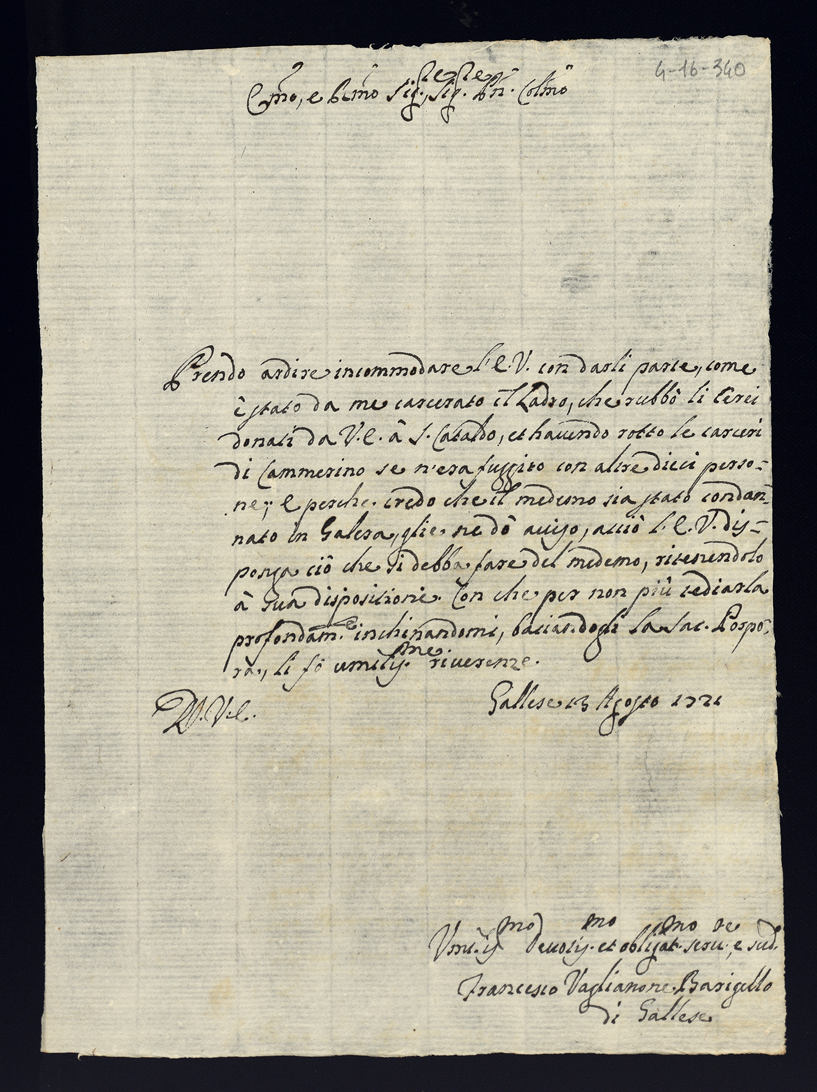 4-16-340
Em̃o, e R̃mo Sig.re, Sig.re Pn̄. Col̃mo
Prendo ardire incommodare l'E.V. con darli parte, come
è stato da me carcerato il Ladro, che rubbò li Cerei
donati da V.E. à S. Cataldo, et havendo rotto le carceri
di Cammerino se n'era fuggito con altre dieci perso=
ne; E perche credo che il medemo sia stato condan=
nato in Galera, glie ne dò aviso, acciò l'E.V. dis=
ponga ciò che si debba fare del medemo, ritenendolo
à sua dispositione. Con che per non più tediarla
profondam.te inchinandomi, baciandogli la Sac. Porpo=
ra, li fò umiliss.me riverenze.
D. V. E.
Gallese 13 Agosto 1721
Umiliss.mo Devotiss.mo et obligat.mo serv.re, e sud.
Francesco Vaglianone Barigello
di Gallese